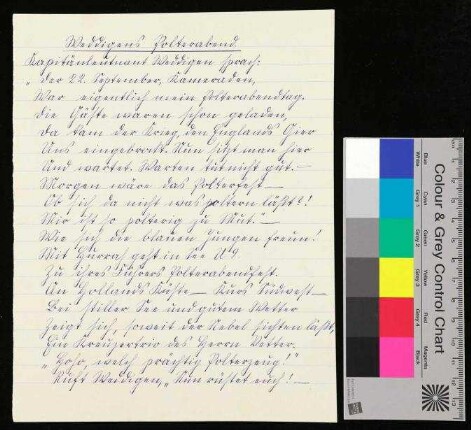 Weddigens Polterabend
Kapitänleutnant Weddigen sprach:
„Der 22. September, Kameraden,
War eigentlich mein Polterabendtag.
Die Gäste waren schon geladen,
Da kam der Krieg, den Englands Gier
Uns eingebrockt. Nun sitzt man hier
Und wartet. Warten tut nicht gut. —
Morgen wäre das Polterfest —
Ob sich da nicht was poltern läßt?!
Mir ist so polterig zu Mut." —
Wie sich die blauen Jungen freun!
Mit Hurrah geht in See U 9
Zu ihres Führers Polterabendfest.
An Hollands Küste — Kurs Südwest —
Bei stiller See und gutem Wetter
Zeigt sich, soweit der Nebel sichten läßt,
Ein Kreuzertrio des Herrn Vetter.
„Hoho, welch prächtig Polterzeug!"
Ruft Weddigen, „Nun rüstet euch! —
Colour & Grey Control Chart
Blue
Cyan
Green
Yellow
Red
Magenta
White
Grey 1
Grey 2
Grey 3
Grey 4
Black